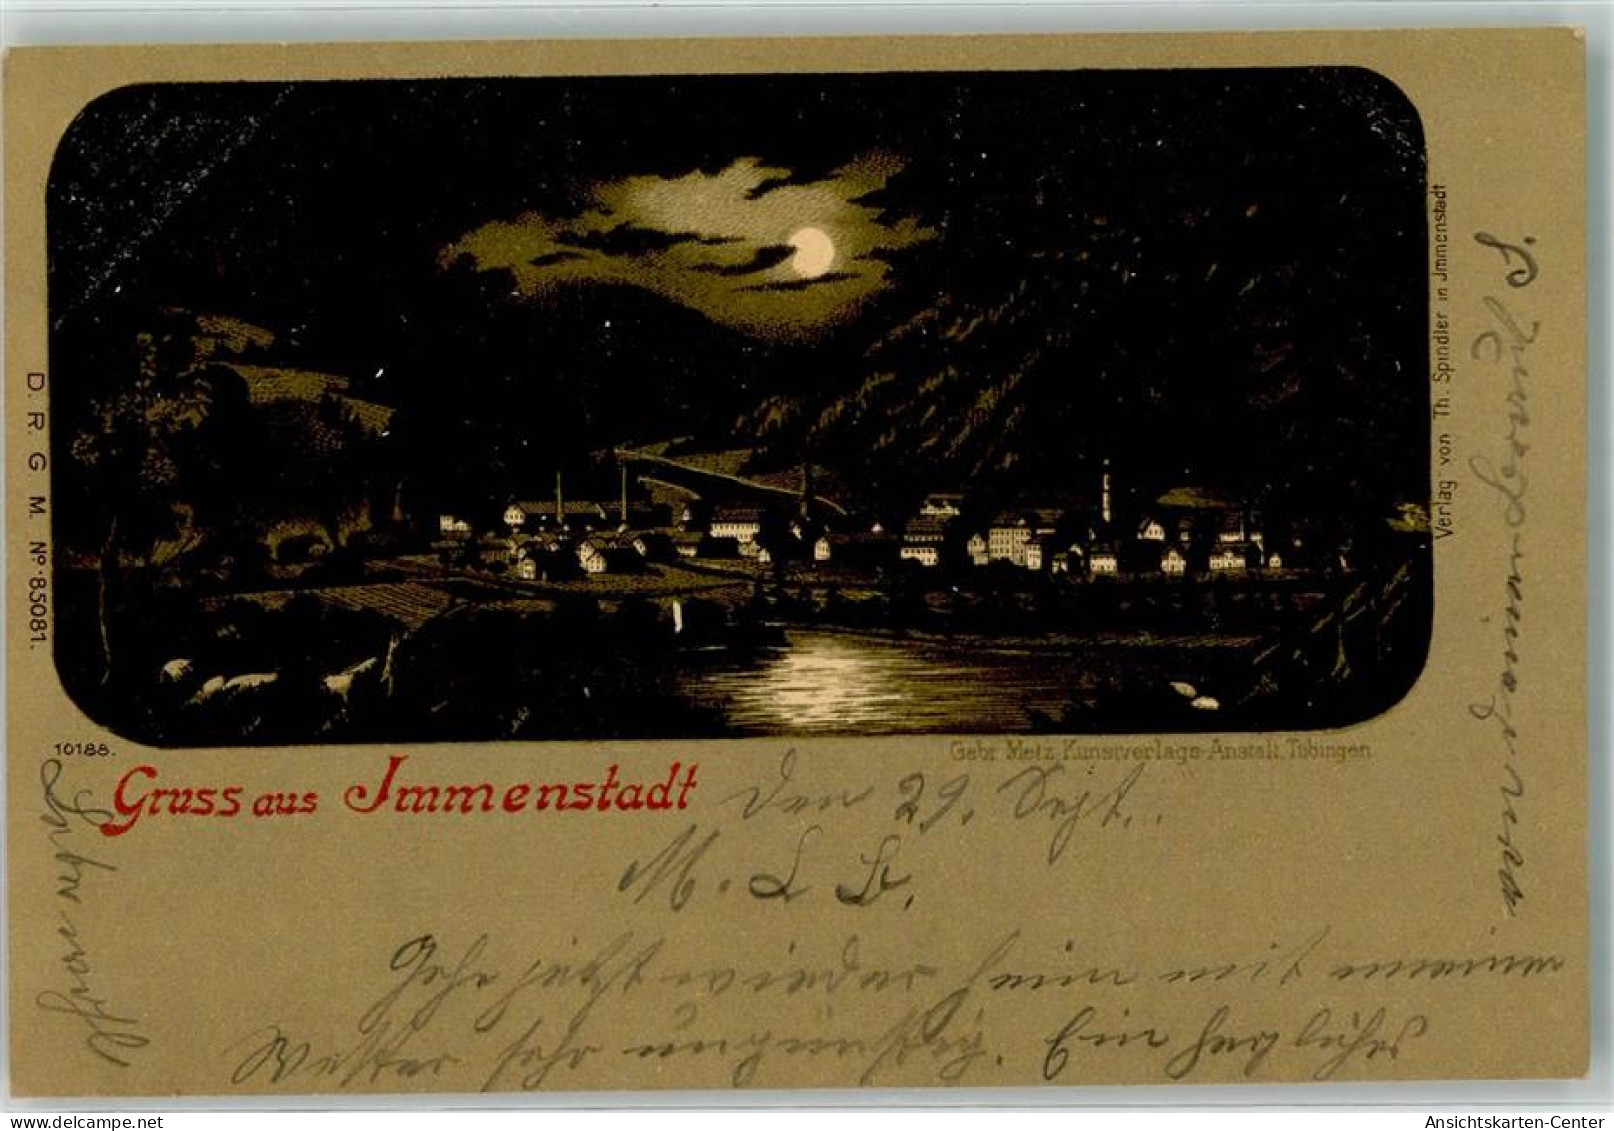 D. R. G. M. No. 85081.
Verlag von Th. Spindler in Immenstadt
10188.
Gebr. Metz, Kunstverlags-Anstalt, Tübingen
Gruss aus Immenstadt
den 29. Sept.
M. L. B.
Gehe jetzt wieder heim mit meiner
Wetter sehr ungünstig. Ein herzliches
Lebewohl
Ansichtskarten-Center